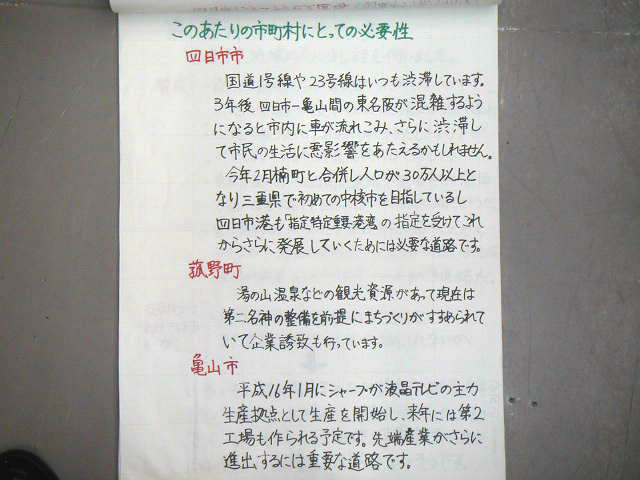 このあたりの市町村にとっての必要性
四日市市
国道1号線や23号線はいつも渋滞しています。
3年後、四日市ー亀山間の東名阪が混雑するよう
になると市内に車が流れこみ、さらに渋滞し
て市民の生活に悪影響をあたえるかもしれません。
今年2月楠町と合併し人口が30万人以上と
なり三重県で初めての中核市を目指しているし
四日市港も「指定特定重要港湾」の指定を受けてこれ
からさらに発展していくためには必要な道路です。
菰野町
湯の山温泉などの観光資源があって現在は
第二名神の整備を前提にまちづくりがすすめられて
いて企業誘致も行っています。
亀山市
平成16年1月にシャープが液晶テレビの主力
生産拠点として生産を開始し、来年には第2
工場も作られる予定です。先端産業がさらに
進出するには重要な道路です。